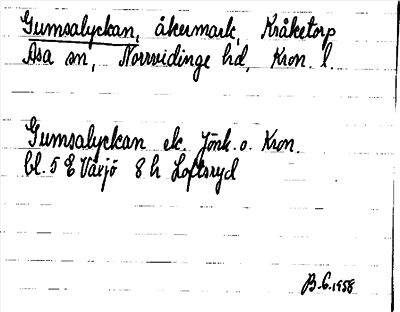 Gumsalyckan, åkermark, Kråketorp
Asa sn, Norrvidinge hd, Kron. l.
Gumsalyckan ek. Jönk. o. Kron.
bl. 5 E Växjö 8 h Loftsryd
B. G. 1958